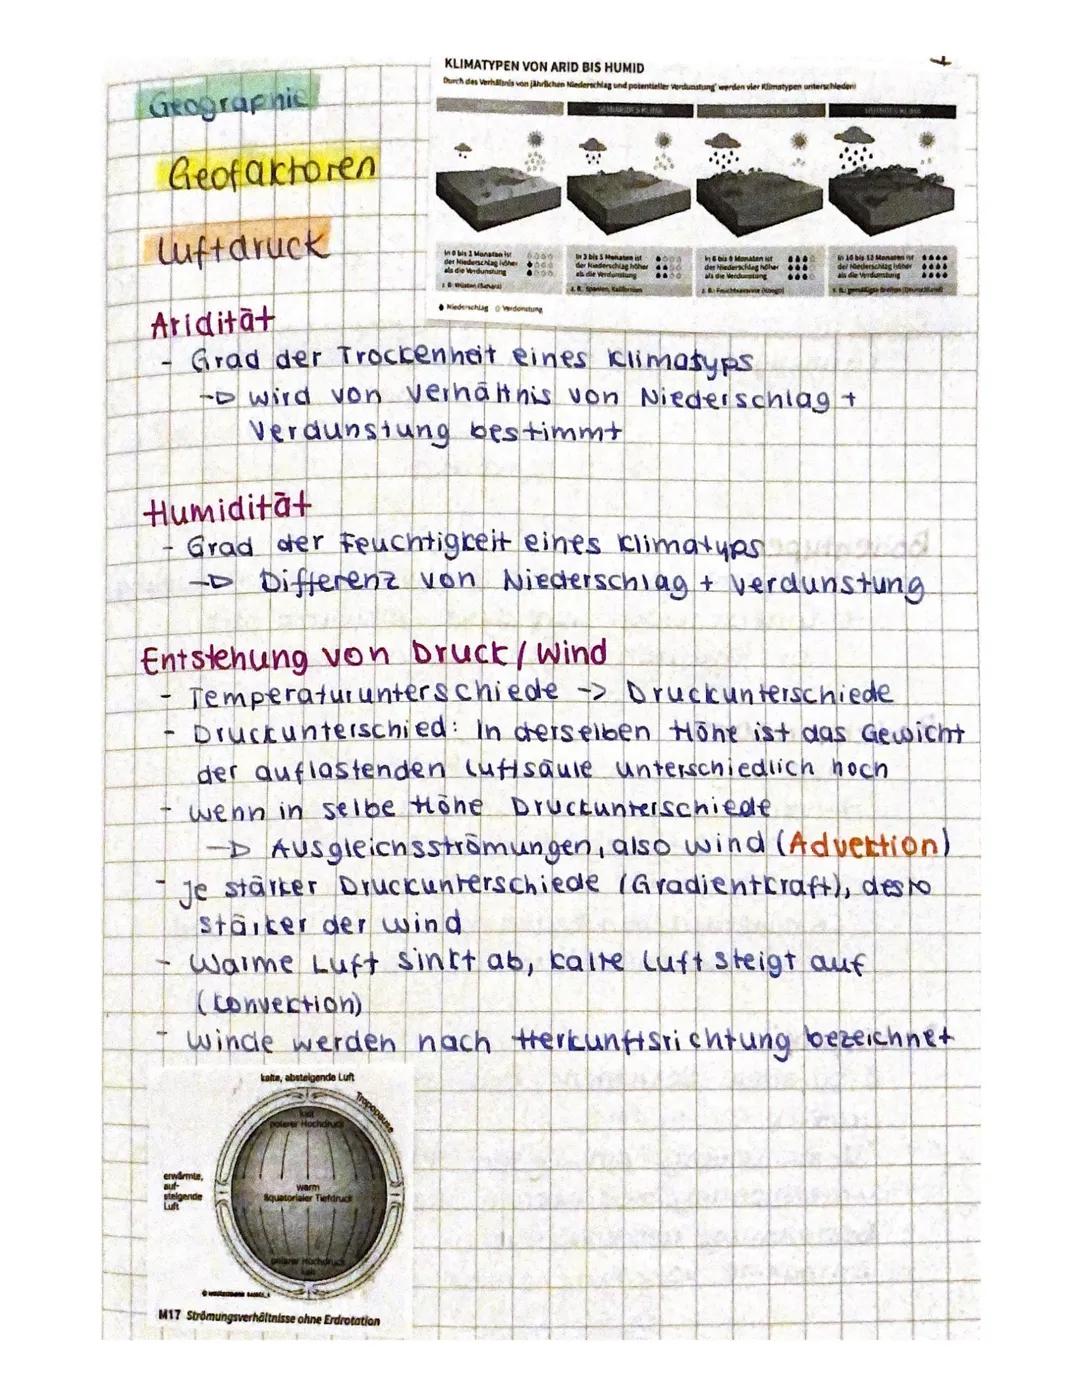 Geographie
Geofaktoren
Luftdruck
KLIMATYPEN VON ARID BIS HUMID
Durch das Verhältnis von jährlichen Niederschlag und potentieller Verdunstung werden vier Klimatypen unterschieden:
In 0 bis 2 Monaten ist
der Niederschlag höher
als die Verdunstung
z. B. Wüsten (Sahara)
In 3 bis 5 Monaten ist
der Niederschlag höher
als die Verdunstung
z. B. Spanien, Kalifornien
In 6 bis 9 Monaten ist
der Niederschlag höher
als die Verdunstung
z. B. Feuchtsavanne (Kongo)
In 10 bis 12 Monaten ist
der Niederschlag höher
als die Verdunstung
z. B. gemäßigte Breiten (Deutschland)
Niederschlag Verdunstung
Aridität
- Grad der Trockenheit eines Klimatyps
-> wird von Verhältnis von Niederschlag +
Verdunstung bestimmt
Humidität
- Grad der Feuchtigkeit eines Klimatyps
-> Differenz von Niederschlag + Verdunstung
Entstehung von Druck/Wind
- Temperaturunterschiede -> Druckunterschiede
- Druckunterschied: In derselben Höhe ist das Gewicht
der auflastenden Luftsäule unterschiedlich hoch
- wenn in selbe Höhe Druckunterschiede
-> Ausgleichsströmungen, also Wind (Advektion)
- je stärker Druckunterschiede (Gradientkraft), desto
stärker der Wind
- Warme Luft sinkt ab, kalte Luft steigt auf
(Konvektion)
- Winde werden nach Herkunftsrichtung bezeichnet
kalte, absteigende Luft
Tropopause
kalt
polarer Hochdruck
erwärmte,
auf-
steigende
Luft
warm
äquatorialer Tiefdruck
polarer Hochdruck
kalt
M17 Strömungsverhältnisse ohne Erdrotation